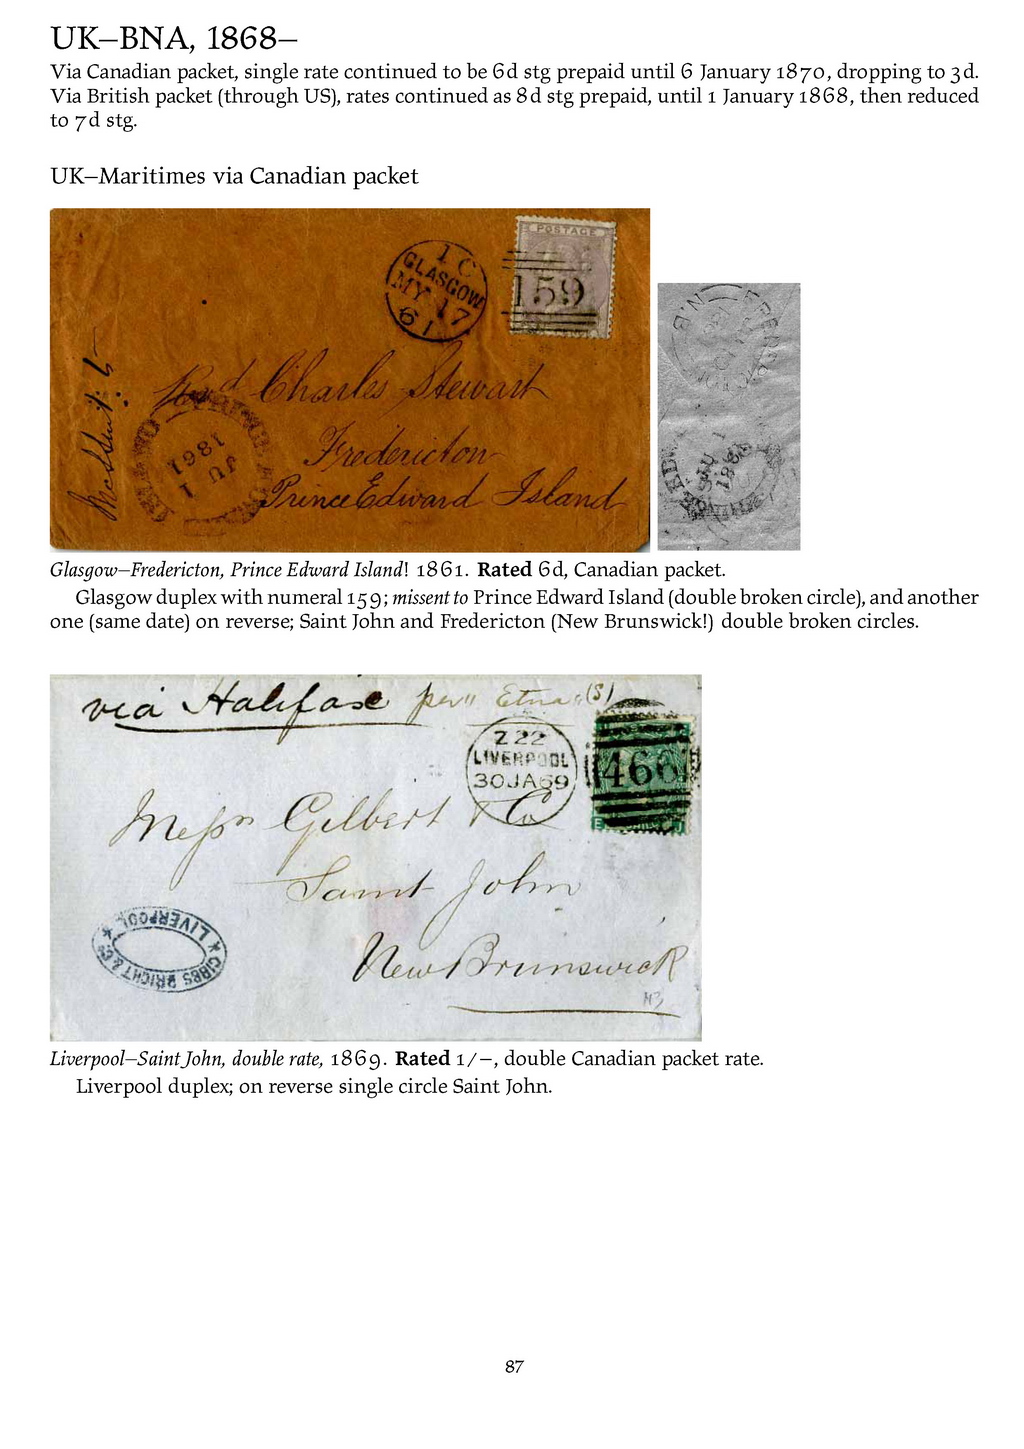 UK–BNA, 1868–
Via Canadian packet, single rate continued to be 6d stg prepaid until 6 January 1870, dropping to 3d.
Via British packet (through US), rates continued as 8d stg prepaid, until 1 January 1868, then reduced
to 7d stg.
UK–Maritimes via Canadian packet
POSTAGE
1 C
GLASGOW
MY 17
61
159
Missent to
Charles Stewart
Fredericton
Prince Edward Island
JU 1
1861
N.B
JU 1
1861
Glasgow–Fredericton, Prince Edward Island! 1861. Rated 6d, Canadian packet.
Glasgow duplex with numeral 159; missent to Prince Edward Island (double broken circle), and another
one (same date) on reverse; Saint John and Fredericton (New Brunswick!) double broken circles.
via Halifax per "Etna" (S)
Z 22
LIVERPOOL
30 JA 69
466
Messrs Gilbert & Co
Saint John
New Brunswick
GIBBS BRIGHT & Co
* LIVERPOOL *
Liverpool–Saint John, double rate, 1869. Rated 1/–, double Canadian packet rate.
Liverpool duplex; on reverse single circle Saint John.
87